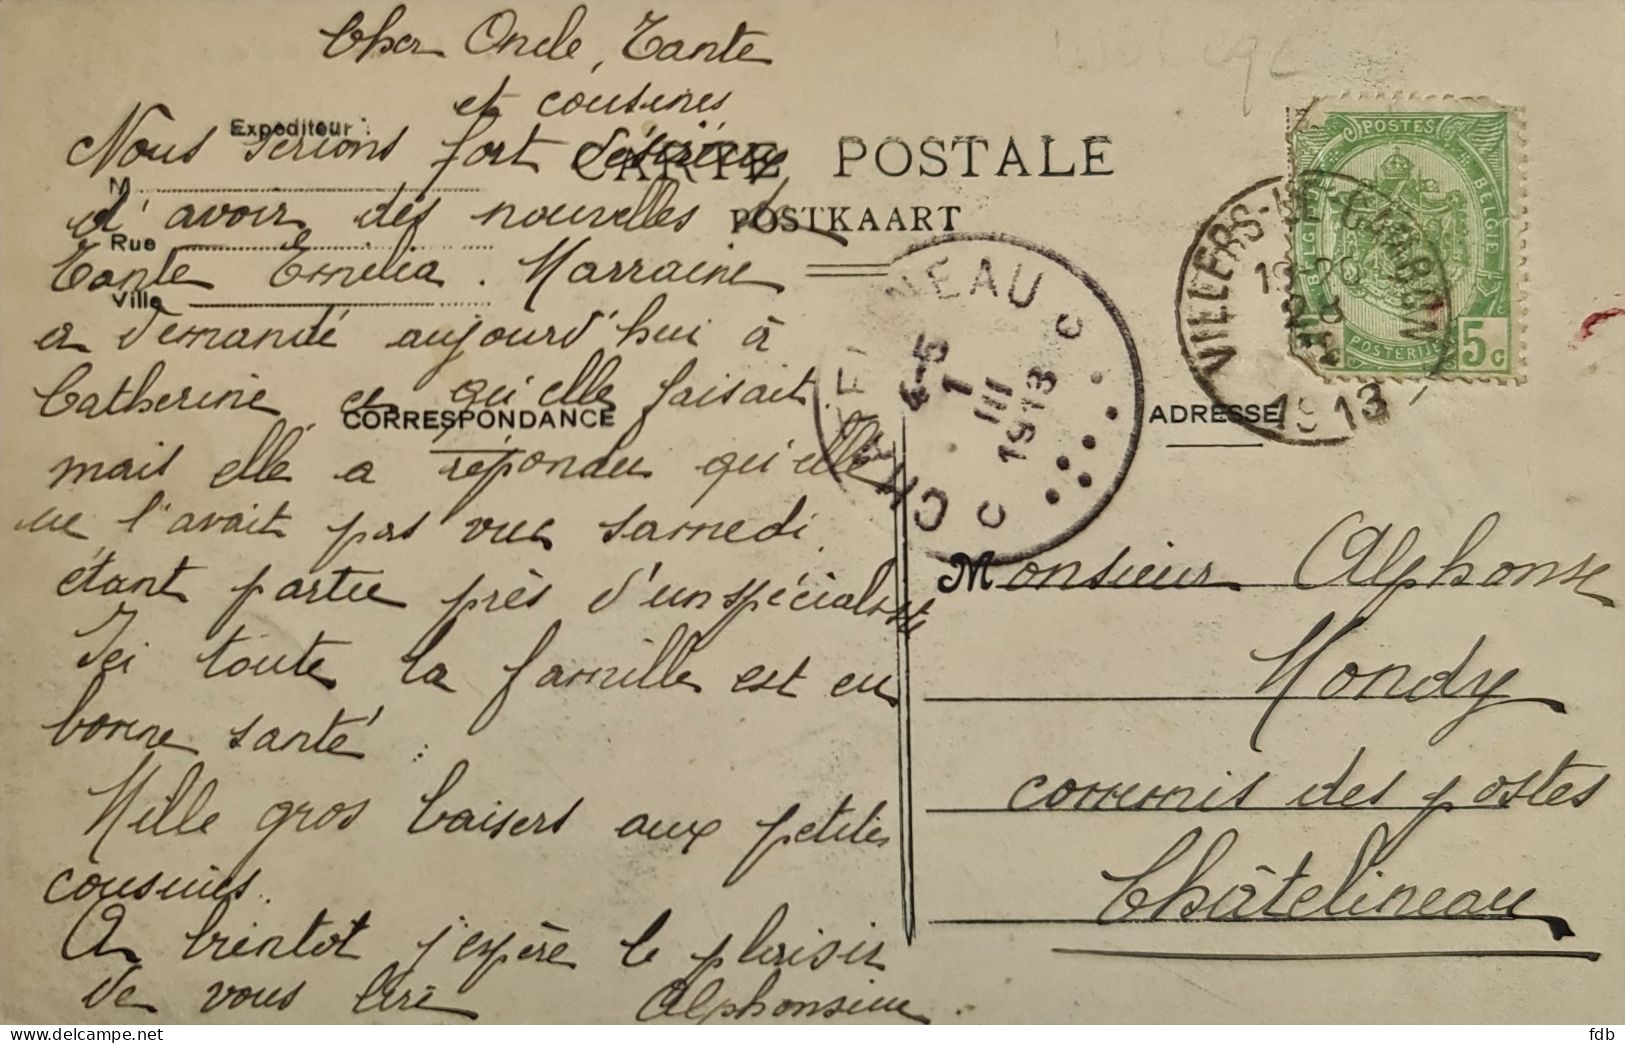 Cher Oncle, Tante
et cousines
Nous serions fort désireux
d'avoir des nouvelles de
Tante Emélia. Marraine
a demandé aujourd'hui à
Catherine ce qu'elle faisait.
mais elle a répondu qu'elle
ne l'avait pas vue samedi,
étant partie près d'un spécialiste
Ici toute la famille est en
bonne santé.
Mille gros baisers aux petites
cousines.
A bientot j'espère le plaisir
de vous lire Alphonsine.
Expéditeur :
M
Rue
Ville
CARTE POSTALE
POSTKAART
CORRESPONDANCE
ADRESSE
CHATELINEAU
4-5
1
III
1913
C C
VILLERS-
1913
POSTES
BELGIQUE
BELGIE
POSTERIJEN
5c
Monsieur Alphonse
Mondy
commis des postes
Châtelineau
fdb